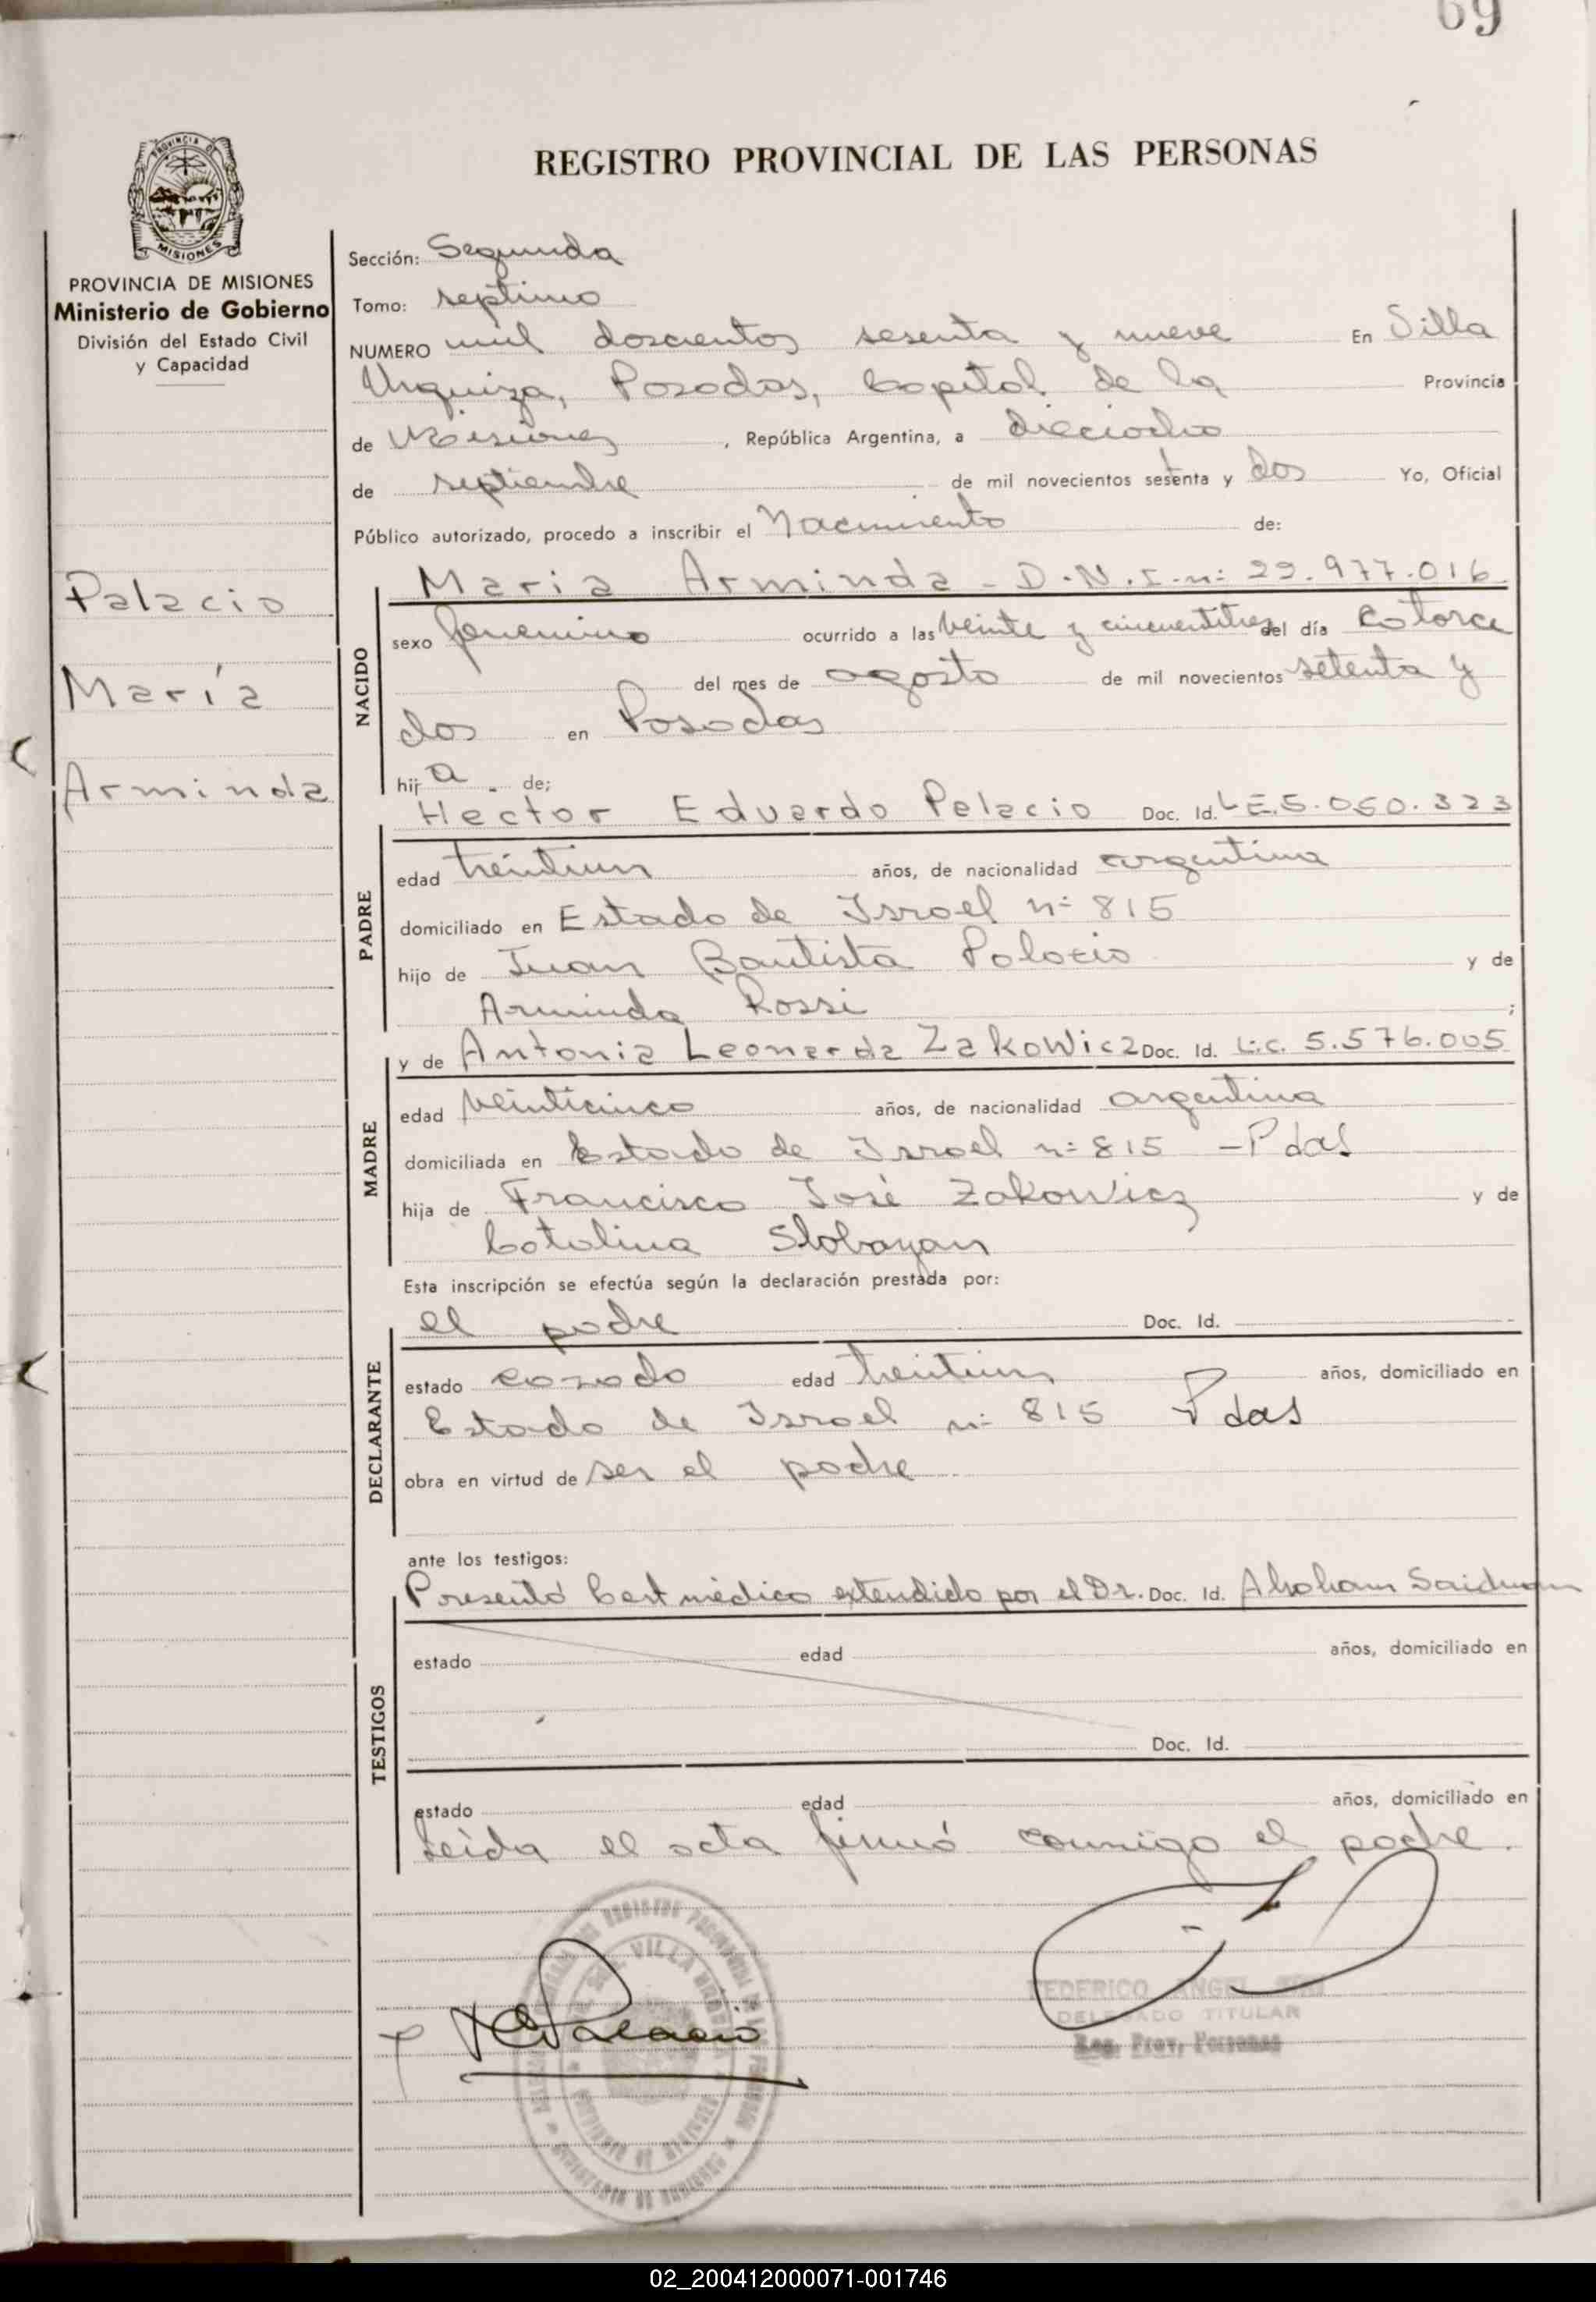 69
REGISTRO PROVINCIAL DE LAS PERSONAS
PROVINCIA DE
MISIONES
PROVINCIA DE MISIONES
Ministerio de Gobierno
División del Estado Civil
y Capacidad
Palacio
María
Arminda
Sección: Segunda
Tomo: septimo
NUMERO mil doscientos sesenta y nueve En Villa
Urquiza, Posadas, Capital de la Provincia
de Misiones, República Argentina, a dieciocho
de septiembre de mil novecientos sesenta y dos Yo, Oficial
Público autorizado, procedo a inscribir el Nacimiento de:
NACIDO
Maria Arminda - D.N.I. n: 22.977.016
sexo femenino ocurrido a las veinte y cincuentitres del día catorce
del mes de agosto de mil novecientos setenta y
dos en Posadas
hija de;
PADRE
Hector Eduardo Palacio Doc. Id. L.E. 5.050.323
edad treintiun años, de nacionalidad argentina
domiciliado en Estado de Israel n: 815
hijo de Juan Bautista Palacio y de
Arminda Rossi ;
MADRE
y de Antonia Leonarda Zakowicz Doc. Id. L.C. 5.576.005
edad veinticinco años, de nacionalidad argentina
domiciliada en Estado de Israel n: 815 - Pdas
hija de Francisco José Zakowicz y de
Catalina Slobayan
Esta inscripción se efectúa según la declaración prestada por:
DECLARANTE
el padre Doc. Id.
estado casado edad treintiun años, domiciliado en
Estado de Israel n: 815 Pdas
obra en virtud de ser el padre
ante los testigos:
TESTIGOS
Presentó Cert médico extendido por el Dr. Doc. Id. Abraham Saidman
estado edad años, domiciliado en
Doc. Id.
estado edad años, domiciliado en
Leida el acta firmó conmigo el padre.
VILLA
Palacio
FEDERICO ANGEL
DELEGADO TITULAR
Reg. Prov. Personas
02_200412000071-001746